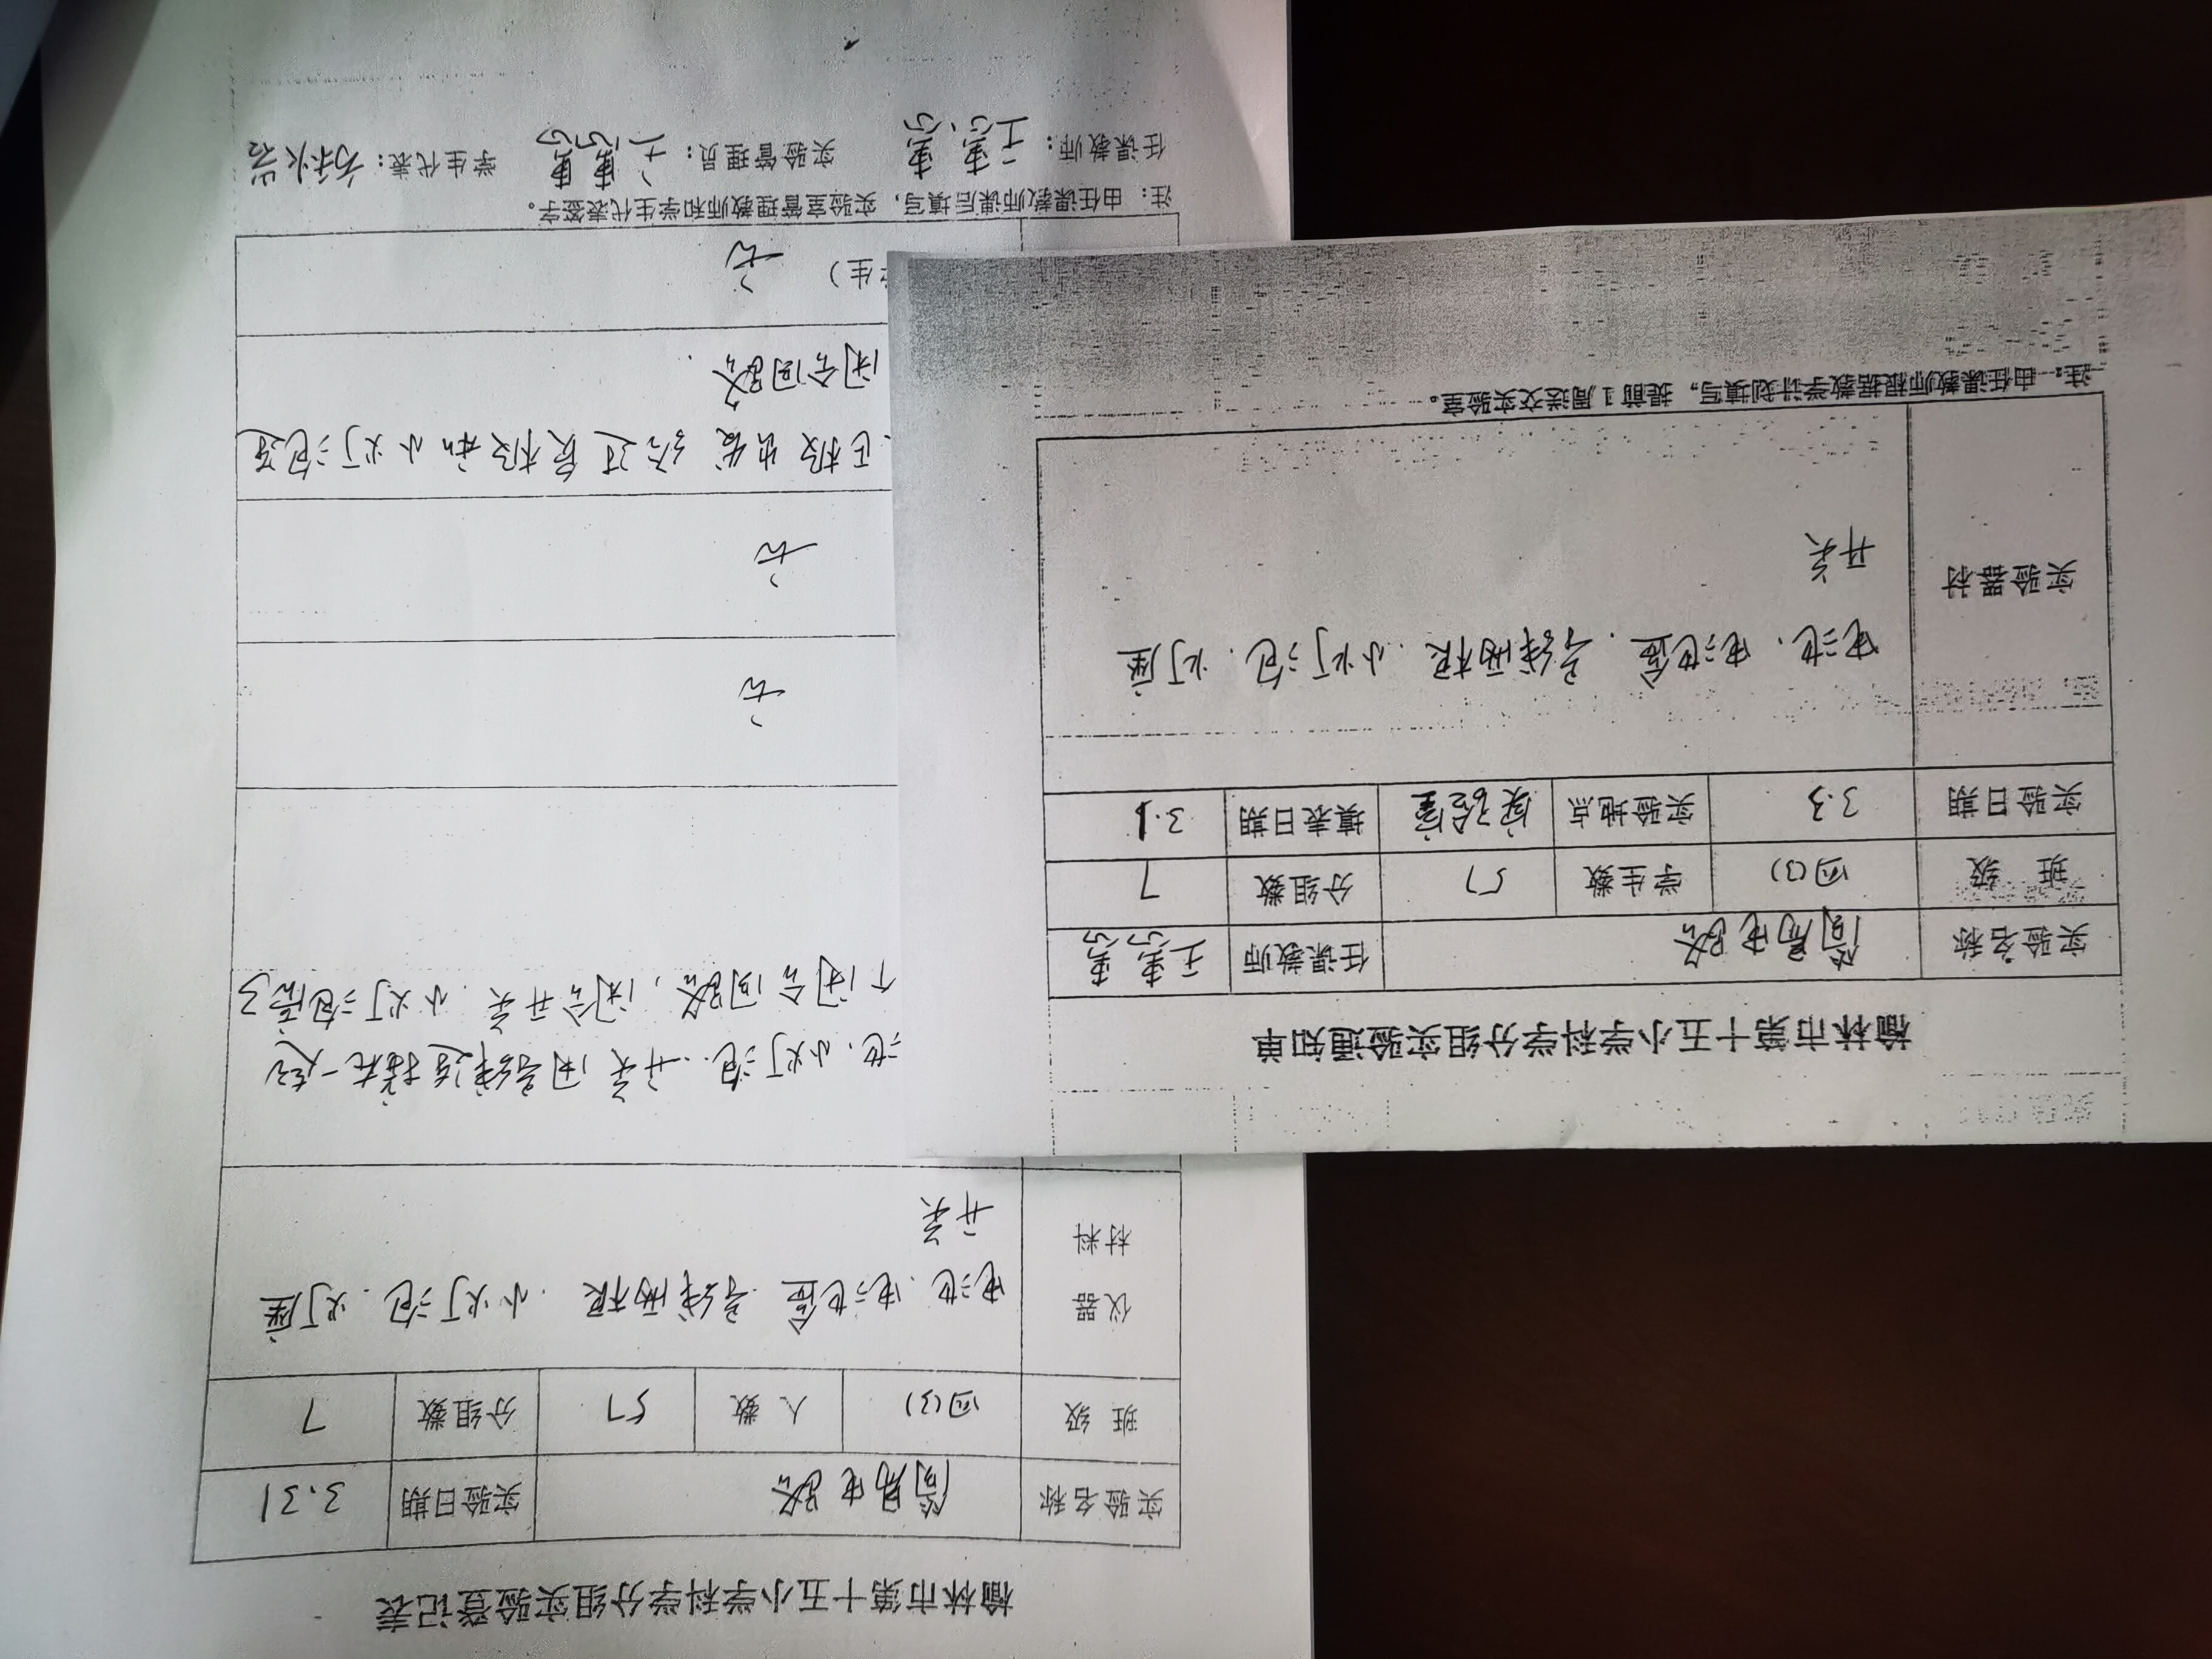 榆林市第十五小学科学分组实验登记表
实验名称 简易电路 实验日期 3.31
班 级 四(3) 人 数 57 分组数 7
仪器 材料
电池.电池盒.导线两根.小灯泡.灯座
开关
池.小灯泡.开关用导线连接在一起
个闭合回路,闭合开关.小灯泡亮了
无
无
正极出发 经过负极和小灯泡连
闭合回路.
生) 无
注:由任课教师课后填写,实验室管理教师和学生代表签字。
任课教师: 实验管理员: 学生代表:
榆林市第十五小学科学分组实验通知单
实验名称 简易电路 任课教师
班 级 四(3) 学生数 57 分组数 7
实验日期 3.3 实验地点 实验室 填表日期 3.1
实验器材
电池.电池盒.导线两根.小灯泡.灯座
开关
注:由任课教师根据教学计划填写,提前1周送交实验室。